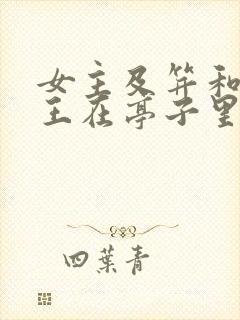 女主及笄和
王在亭子里
四葉青